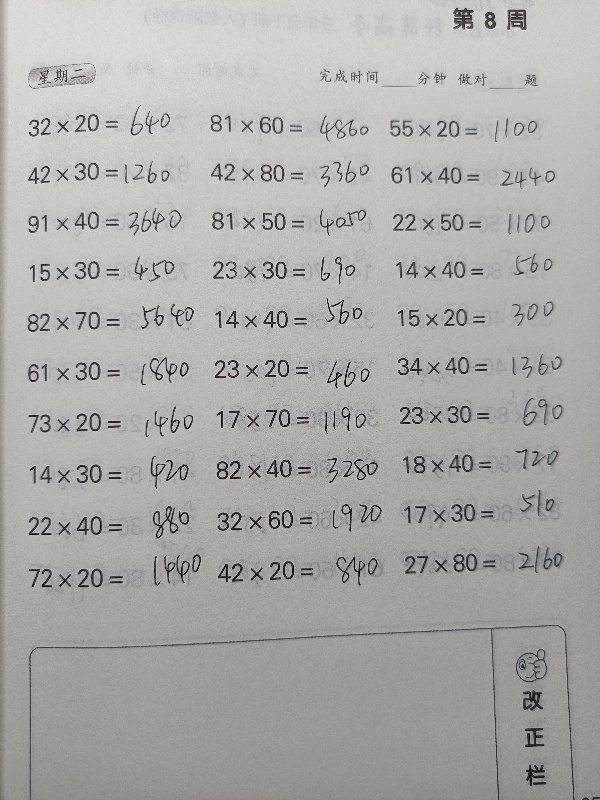 第 8 周
星期二 完成时间____分钟 做对____题
32×20= 640 81×60= 4860 55×20= 1100
42×30= 1260 42×80= 3360 61×40= 2440
91×40= 3640 81×50= 4050 22×50= 1100
15×30= 450 23×30= 690 14×40= 560
82×70= 5640 14×40= 560 15×20= 300
61×30= 1840 23×20= 460 34×40= 1360
73×20= 1460 17×70= 1190 23×30= 690
14×30= 420 82×40= 3280 18×40= 720
22×40= 880 32×60= 1920 17×30= 510
72×20= 1440 42×20= 840 27×80= 2160
改
正
栏